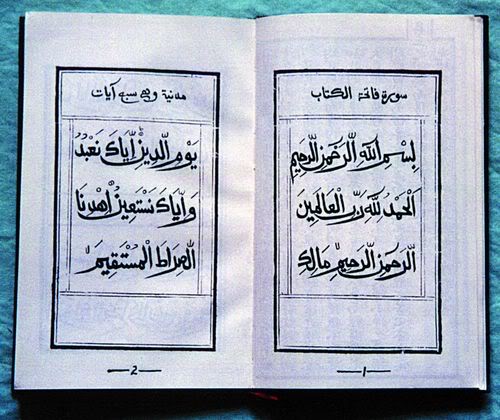 سورة فاتحة الكتاب
بِسْمِ اللَّهِ الرَّحْمَنِ الرَّحِيمِ
الْحَمْدُ لِلَّهِ رَبِّ الْعَالَمِينَ
الرَّحْمَنِ الرَّحِيمِ مَالِكِ
—1—
مدنية وهي سبع آيات
يَوْمِ الدِّينِ إِيَّاكَ نَعْبُدُ
وَإِيَّاكَ نَسْتَعِينُ اهْدِنَا
الصِّرَاطَ الْمُسْتَقِيمَ
—2—